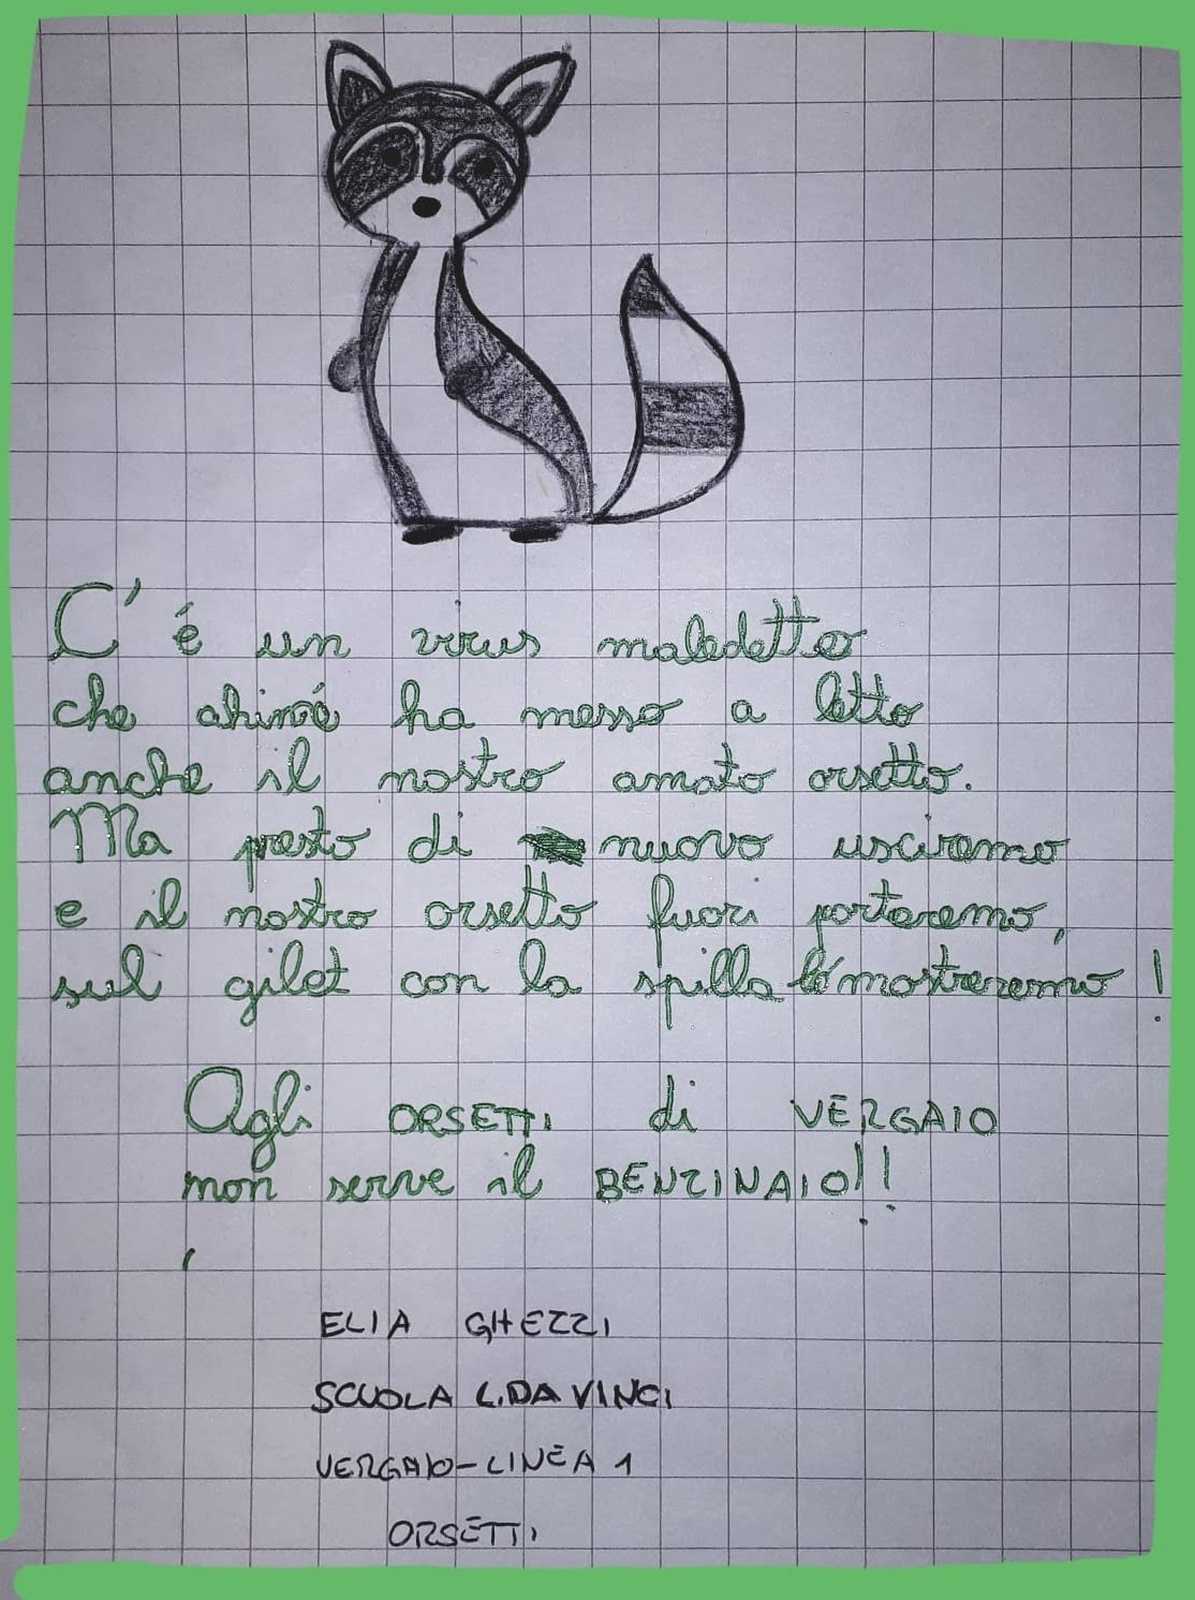 C'é un virus maledetto
che ahimé ha messo a letto
anche il nostro amato orsetto.
Ma presto di nuovo usciremo
e il nostro orsetto fuori porteremo,
sul gilet con la spilla lo mostreremo!
Agli ORSETTI di VERGAIO
non serve il BENZINAIO!!
ELIA GHEZZI
SCUOLA L.DA VINCI
VERGAIO-LINEA 1
ORSETTI